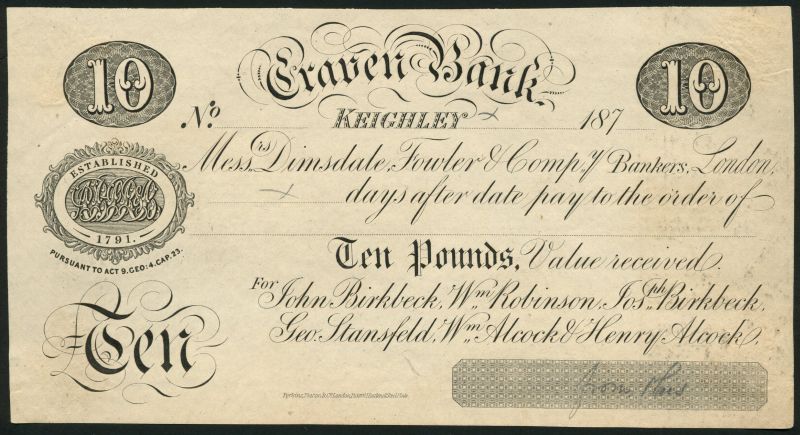 10 Craven Bank. 10
No. KEIGHLEY x 187
Messrs Dimsdale, Fowler & Compy Bankers, London,
x days after date pay to the order of
Ten Pounds, Value received.
For John Birkbeck, Wm Robinson, Josph Birkbeck,
Geo. Stansfeld, Wm Alcock & Henry Alcock,
ESTABLISHED
1791.
PURSUANT TO ACT 9. GEO: 4. CAP. 23.
Ten
from this